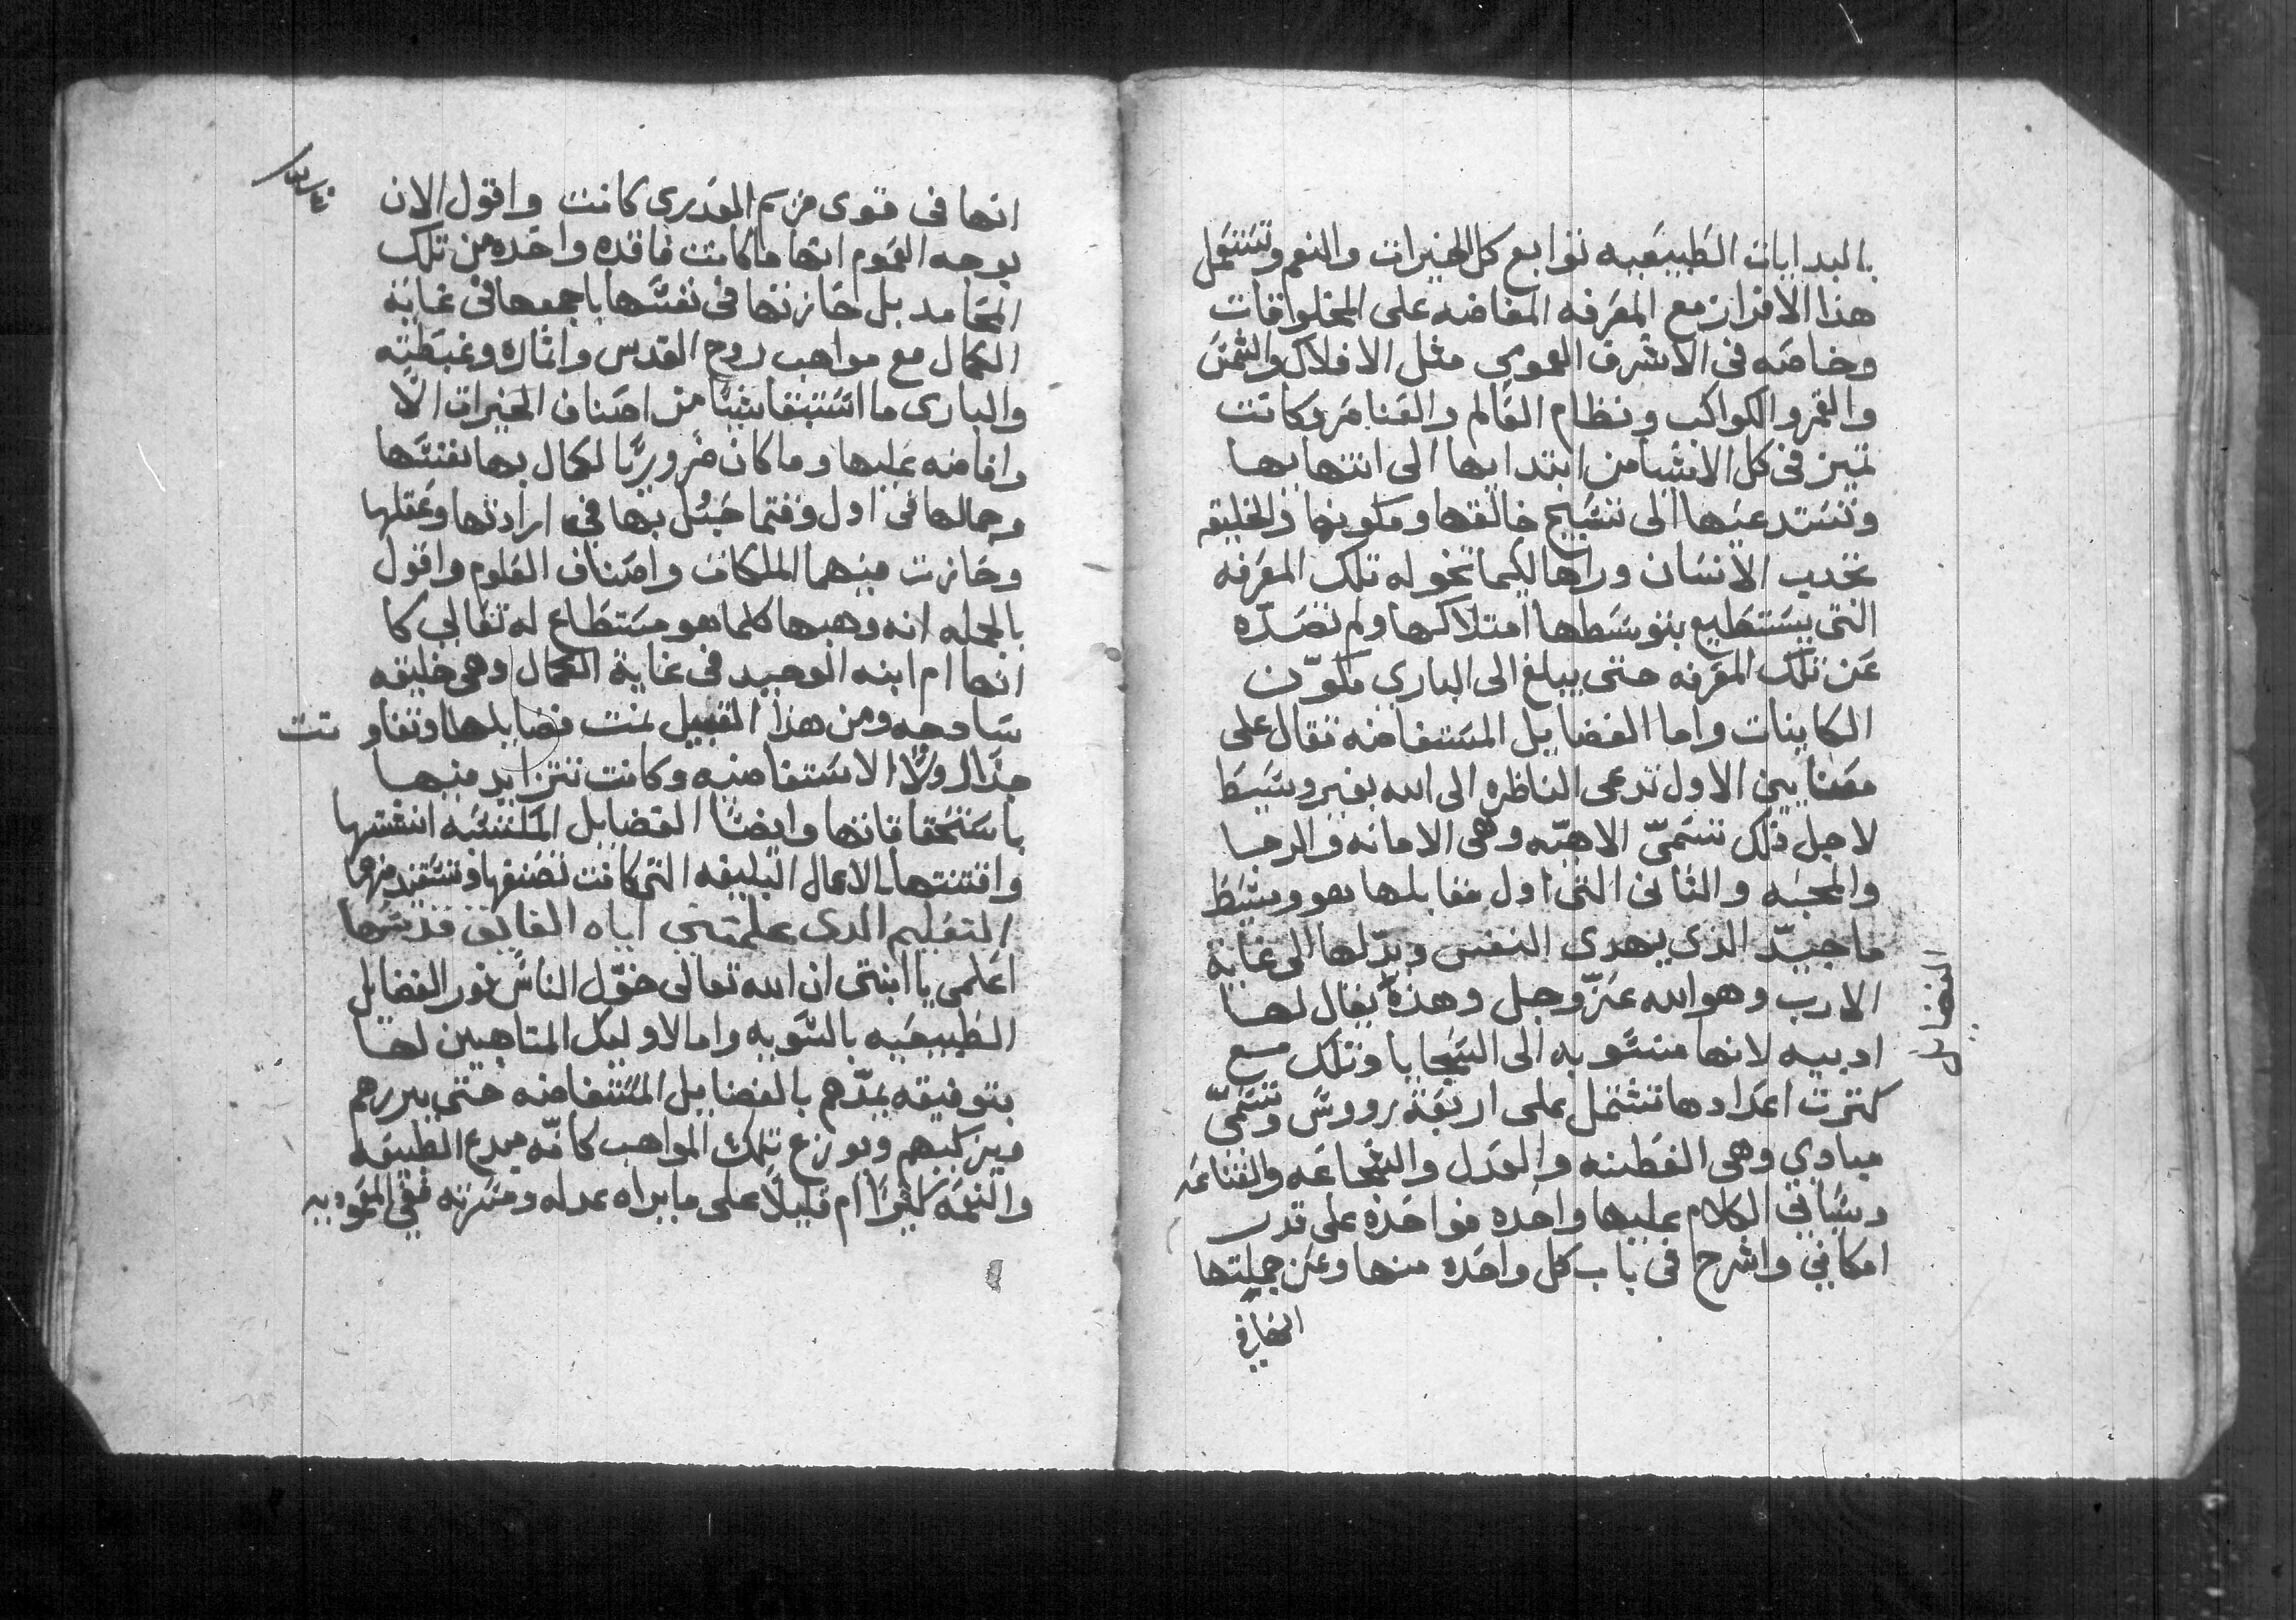 بالبدايات الطبيعيه توابع كل الخيرات والنعم وتستعمل
هذا الافراز مع المعرفه المفاضه على المخلوقات
وخاصه فى الاشرف العموي مثل الافلاك والشمس
والقمر والكواكب ونظام العالم والعناصر وكانت
تميز فى كل الاشيا من ابتدايها الى انتهايها
وتستدعيها الى تسبيح خالقها ومكونها والخليقه
تجدب الانسان وراها لكيما تخوله تلك المعرفه
التى يستطيع بتوسطها امتلاكها ولم تصده
عن تلك المعرفه حتى يبلغ الى الباري مكوّن
الكاينات واما الفضايل المستفاضه تقال على
معنايين الاول تدعى الناظره الى الله بغير وسيط
لاجل ذلك تسمىّ الاهيّه وهى الامانه والرجا
والمحبه والثانى التى اول مقابلها هو وسيط
ماجيدّ الذى يهدى النفس ويدّلها الى غاية
الارب وهو الله عزّ وجل وهذه يقال لها
ادبيه لانها منسوبه الى السجايا وتلك مع
كثرت اعدادها تشتمل على اربعة رووس وتسمىّ
مبادي وهى الفطنه والعدل والشجاعه والقناعه
وسياتي الكلام عليها واحده فواحده على قدر
امكاني واشرح فى باب كل واحده منها وعن جملتها
الفضايل
انها فى قوى مريم العذرى كانت واقول الان
بوجه العموم انها ماكانت فاقده واحده من تلك
المحامد بل حازتها فى نفسها باجمعها فى غاية
الكمال مع مواهب روح القدس واثماره وغبطته
والبارى ما استبقا شيًا من اصناف الخيرات الّا
وافاضه عليها وماكان ضروريًا لكمال بها نفسها
وجمالها فى اول وقتما حبُل بها فى ارادتها وعقلها
وحازت منهما الملكات واصناف العلوم واقول
بالجمله انه وهبها كلما هو مستطاع له تعالي كا
انها ام ابنه الوحيد فى غاية الكمال وهى خليقه
سادجه ومن هذا القبيل نمت فضايلها وتفاوتت
جدًا اولًا الاستفاضيه وكانت تتزايد منها
باستحقاقاتها وايضًا الفضايل المكتسبه انشتها
واقتنتها بالاعمال البليغه التى كانت تصنعها وتستفيد منها
التعليم الدى علمتني اياه الفايق قدسها
اعلمى يا ابنتى ان الله تعالى خوّل الناس نور الفضايل
الطبيعيه بالسويه واما الاوليك المتاهبين لها
بتوفيقه يمدّهم بالفضايل المستفاضه حتى يبررهم
ويزكيهم ويوزع تلك المواهب كافّه مبدع الطبيعه
والنعمه كثيرًا ام قليلًا على ما يراه عدله ومسرته ففي المعموديه